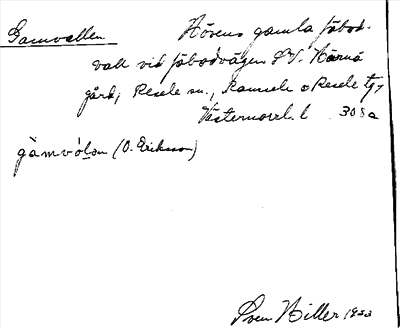 Gamvallen Hövens gamla fäbod-
vall vid fäbodvägen S V. Kärnå
gård, Resele sn., Ramsele o Resele tg,
Västernorrl. l. 308a
gàmvóləṇ (O. Eriksson)
Sven Hiller 1933